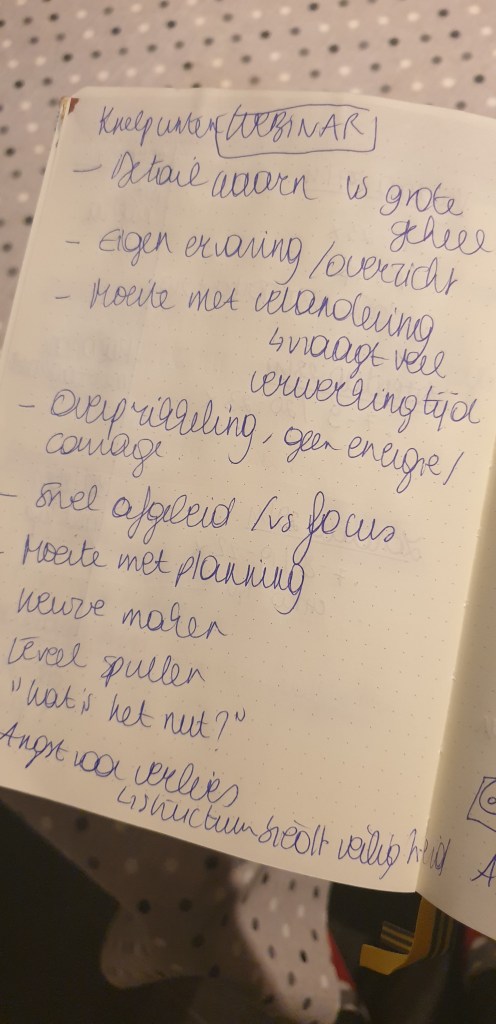 Knelpunten WEBINAR
- Detail waarn vs grote
geheel
- Eigen ervaring / overzicht
- Moeite met verandering
↳ vraagt veel
verwerkingtijd
- Overprikkeling, geen energie/
courage
- Snel afgeleid / vs focus
- Moeite met planning
keuze maken
teveel spullen
"wat is het nut?"
Angst voor verlies
↳ structuur biedt veiligheid
A